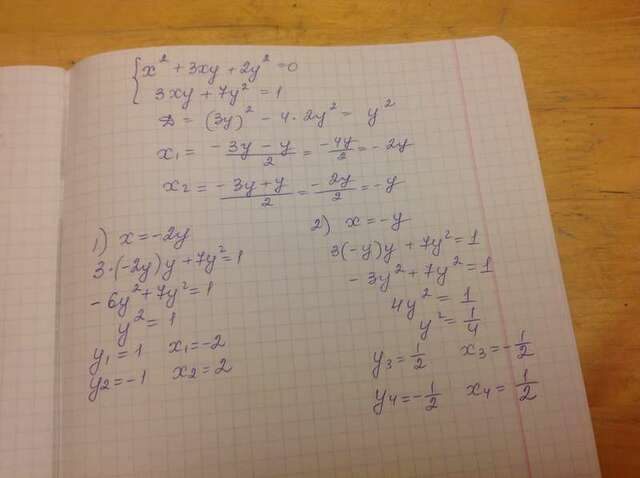 { x² + 3xy + 2y² = 0
3xy + 7y² = 1
D = (3y)² - 4·2y² = y²
x₁ = (-3y - y)/2 = -4y/2 = -2y
x₂ = (-3y + y)/2 = -2y/2 = -y
1) x = -2y
3·(-2y)y + 7y² = 1
-6y² + 7y² = 1
y² = 1
y₁ = 1 x₁ = -2
y₂ = -1 x₂ = 2
2) x = -y
3(-y)y + 7y² = 1
-3y² + 7y² = 1
4y² = 1
y² = 1/4
y₃ = 1/2 x₃ = -1/2
y₄ = -1/2 x₄ = 1/2